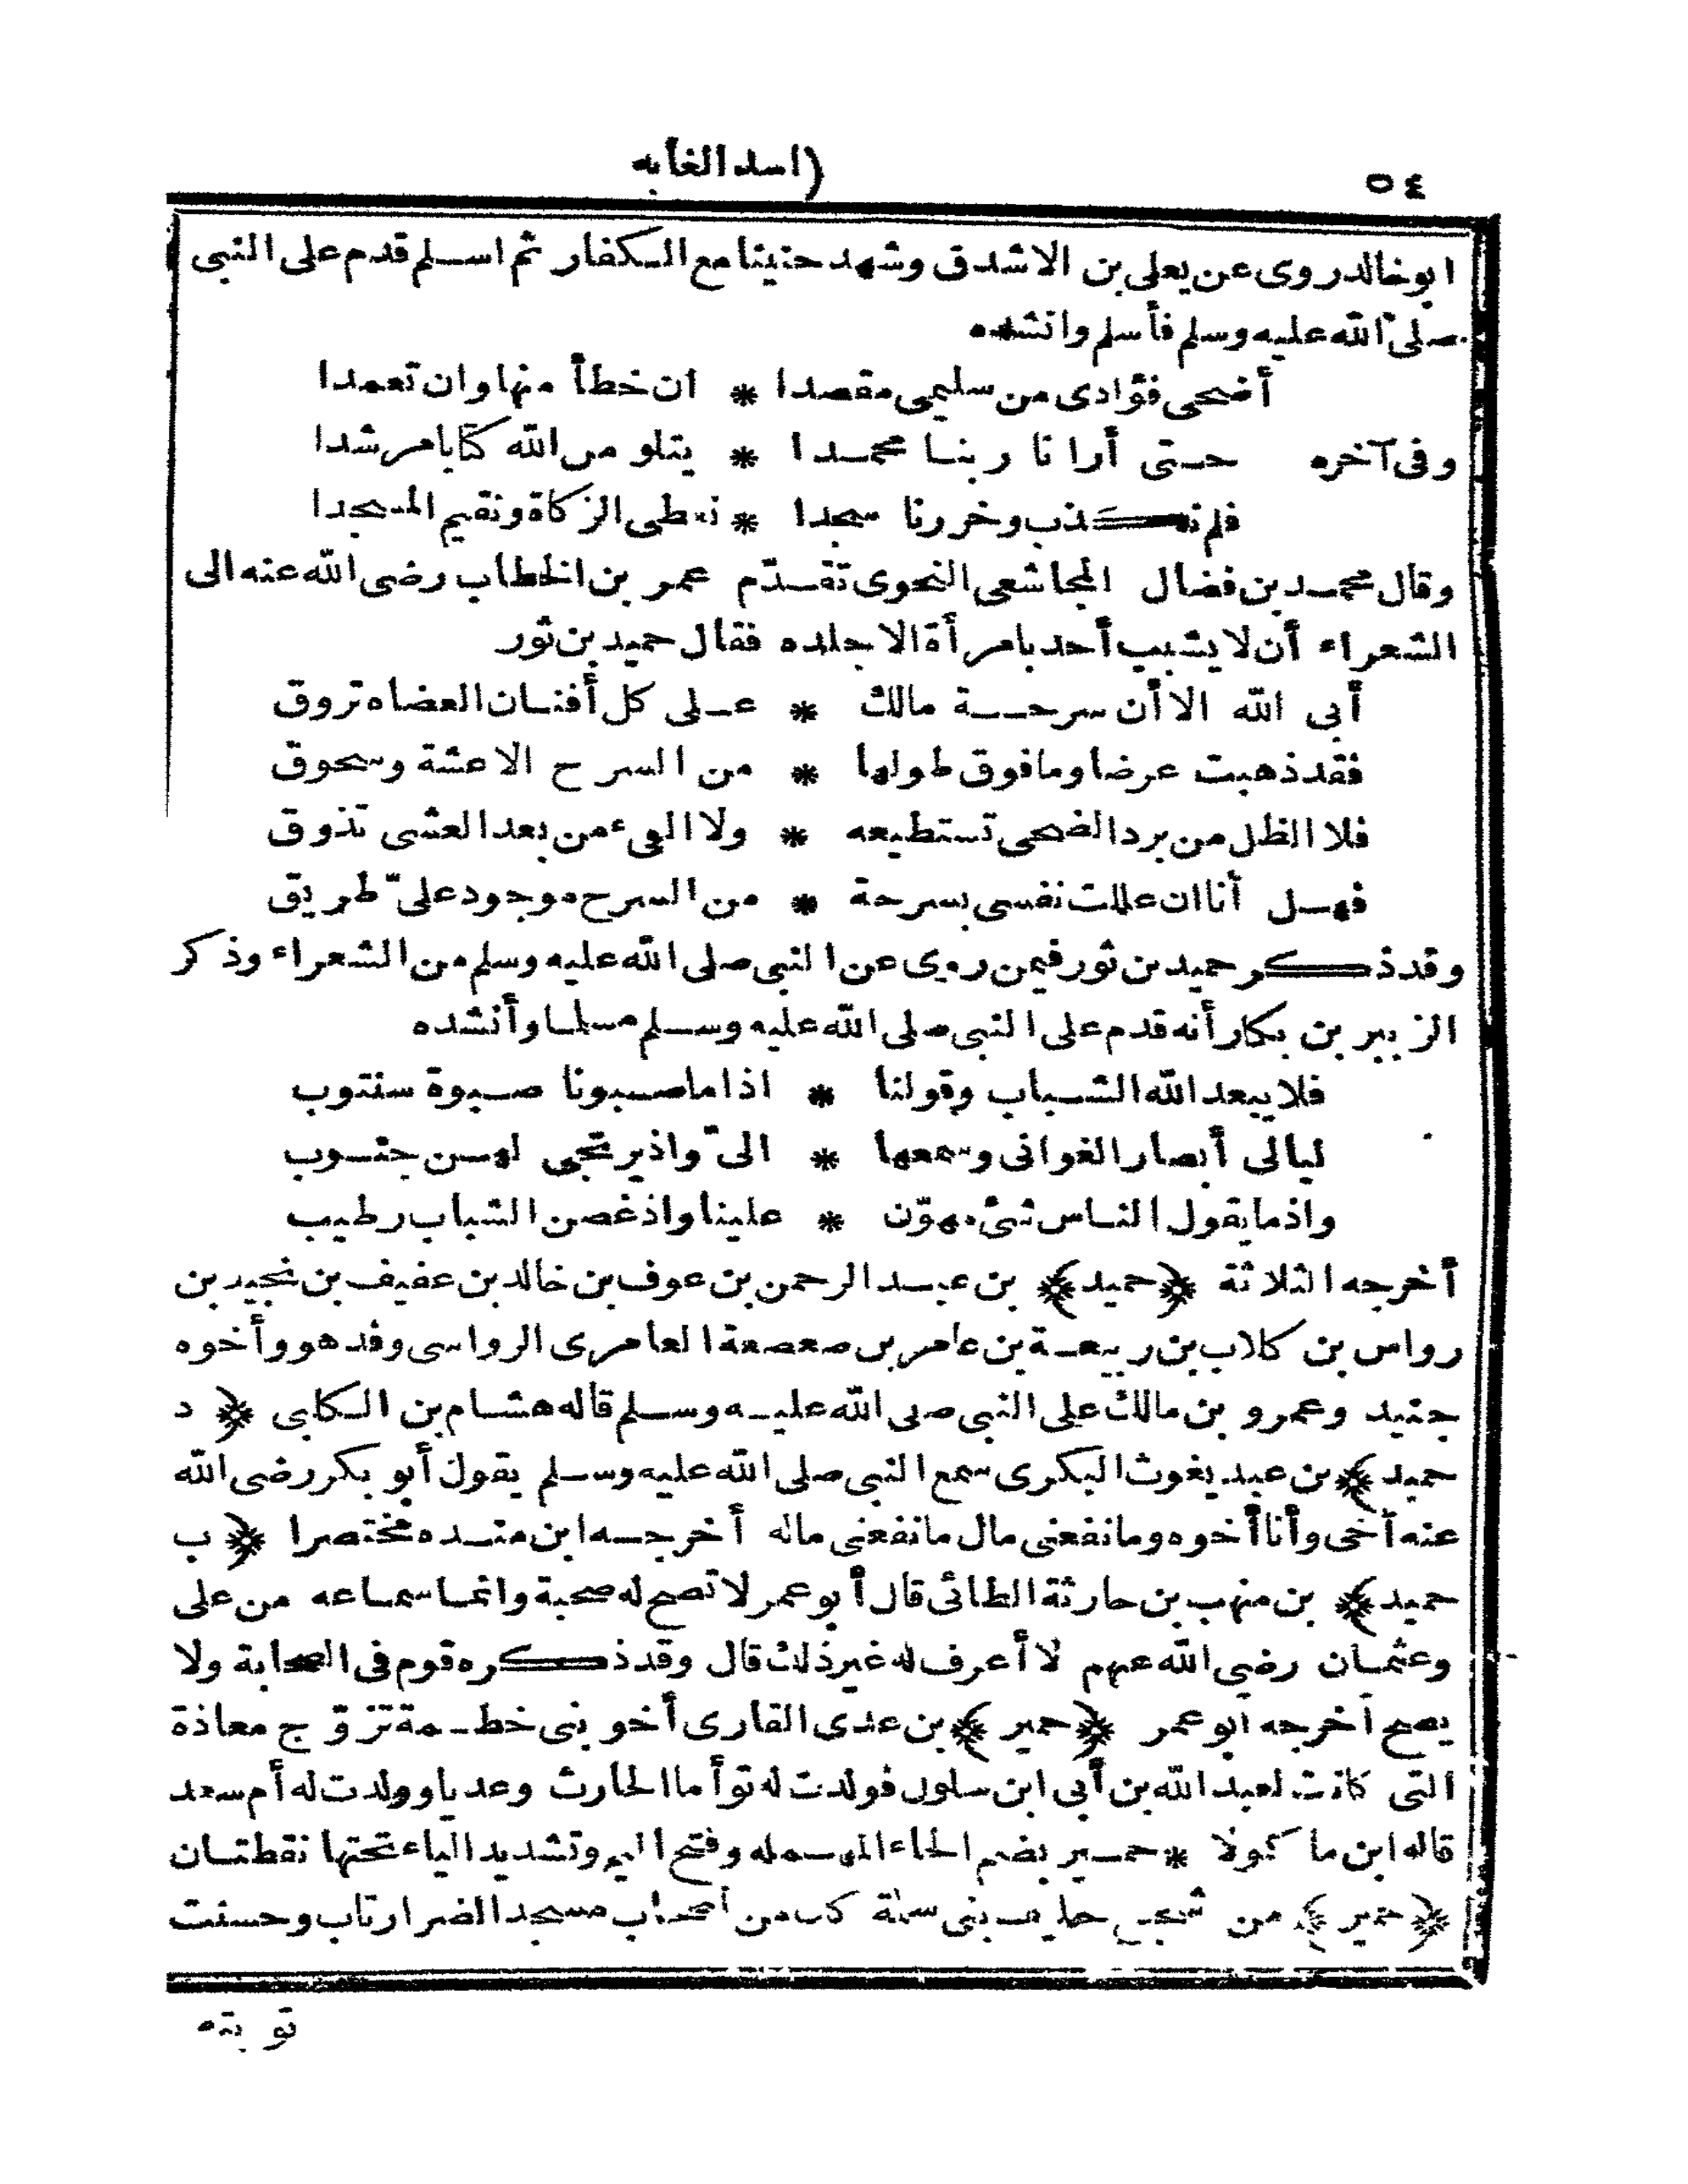 ٥٤
(اسد الغابه
ابو خالد روى عن يعلى بن الاشدق وشهد حنينا مع الكفار ثم اسلم قدم على النبى
صلى الله عليه وسلم فأسلم وانشده
أضحى فؤادى من سليمى مقصدا * ان خطأ منها وان تعمدا
وفى آخره حتى أرانا ربنا محمدا * يتلو من الله كتابا مرشدا
فلم نكذب وخررنا سجدا * نعطى الزكاة ونقيم المسجدا
وقال محمد بن فضال المجاشعى النحوى تقدّم عمر بن الخطاب رضى الله عنه الى
الشعراء أن لا يشبب أحد بامرأة الا جلده فقال حميد بن ثور
أبى الله الا أن سرحة مالك * على كل أفنان العضاه تروق
فقد ذهبت عرضا وما فوق طولها * من السرح الا عشة وسحوق
فلا الظل من برد الضحى تستطيعه * ولا الفىء من بعد العشى تذوق
فهل أنا ان عللت نفسى بسرحة * من السرح موجود علىّ طريق
وقد ذكر حميد بن ثور فيمن روى عن النبى صلى الله عليه وسلم من الشعراء وذكر
الزبير بن بكار أنه قدم على النبى صلى الله عليه وسلم مسلما وأنشده
فلا يبعد الله الشباب وقولنا * اذا ما صبونا صبوة سنتوب
ليالى أبصار الغوانى وسمعها * الىّ واذ يرتحى لهن جنوب
واذ ما يقول الناس شئ مهوّن * علينا واذ غصن الشباب رطيب
أخرجه الثلاثة ﴿حميد﴾ بن عبد الرحمن بن عوف بن خالد بن عفيف بن نجيد بن
رواس بن كلاب بن ربيعة بن عامر بن صعصعة العامرى الرواسى وفد هو وأخوه
جنيد وعمرو بن مالك على النبى صلى الله عليه وسلم قاله هشام بن الكلبى ﴿ د
حميد﴾ بن عبد يغوث البكرى سمع النبى صلى الله عليه وسلم يقول أبو بكر رضى الله
عنه أخى وأنا أخوه وما نفعنى مال ما نفعنى ماله أخرجه ابن منده مختصرا ﴿ ب
حميد﴾ بن منهب بن حارثة الطائى قال أبو عمر لا تصح له صحبة وانما سماعه من على
وعثمان رضى الله عنهم لا أعرف له غير ذلك قال وقد ذكره قوم فى الصحابة ولا
يصح أخرجه أبو عمر ﴿حمير﴾ بن عدى القارى أخو بنى خطمة تزوّج معاذة
التى كانت لعبد الله بن أبى ابن سلول فولدت له توأما الحارث وعديا وولدت له أم سعد
قاله ابن ماكولا * حمير بضم الحاء المهمله وفتح الميم وتشديد الياء تحتها نقطتان
﴿حمير﴾ من أشجع حليف بنى سلمة كان من أصحاب مسجد الضرار تاب وحسنت
توبته